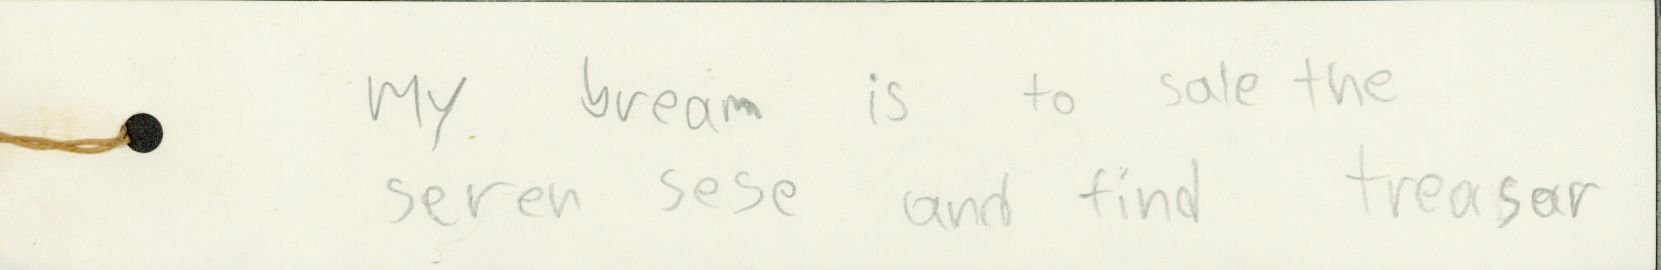 My bream is to sale the
seren sese and find treasar